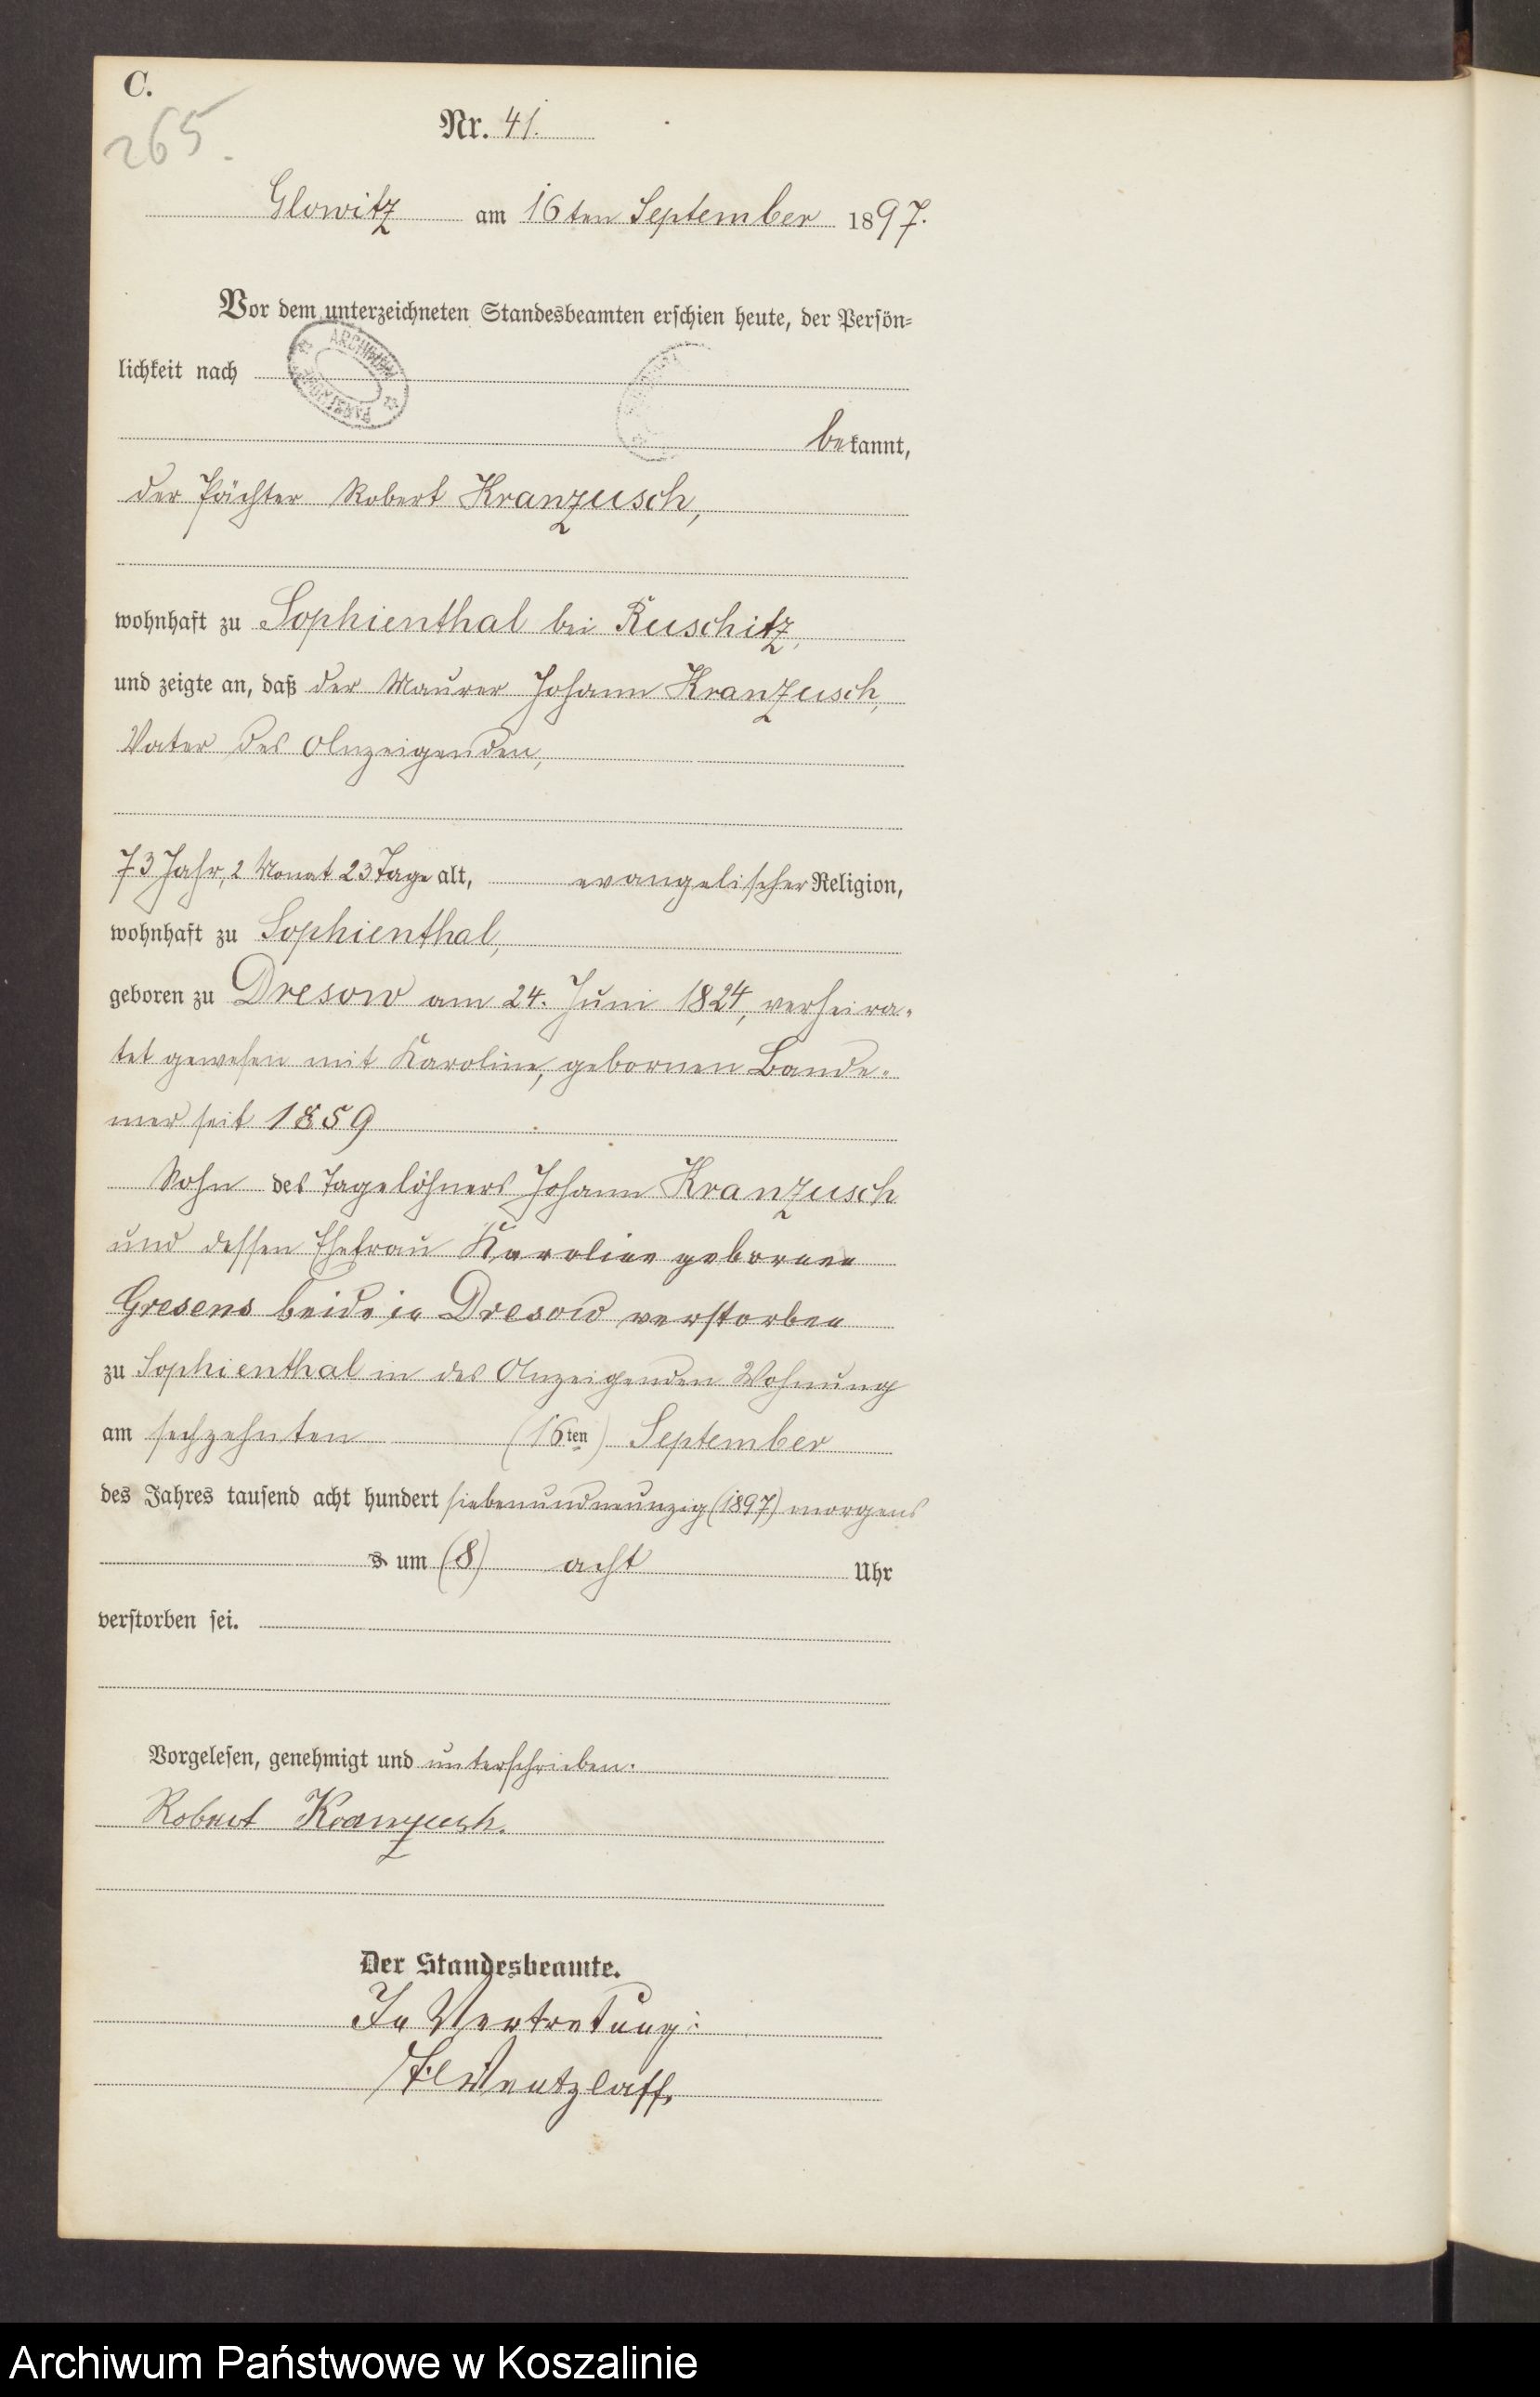 C.
265.
Nr. 41.
Glowitz am 16ten September 1897.
Vor dem unterzeichneten Standesbeamten erschien heute, der Persön-
lichkeit nach
ARCHIWUM
bekannt,
der Pächter Robert Kranzusch,
wohnhaft zu Sophienthal bei Ruschitz,
und zeigte an, daß der Maurer Johann Kranzusch,
Vater des Anzeigenden,
73 Jahr, 2 Monat 23 Tage alt, evangelischer Religion,
wohnhaft zu Sophienthal,
geboren zu Dresow am 24. Juni 1824, verheira-
tet gewesen mit Karoline, gebornen Bande-
mer seit 1859
Sohn des Tagelöhners Johann Kranzusch
und dessen Ehefrau Karoline gebornen
Gresens beide in Dresow verstorben
zu Sophienthal in des Anzeigenden Wohnung
am sechzehnten (16ten) September
des Jahres tausend acht hundert siebenundneunzig (1897) morgens
um (8) acht Uhr
verstorben sei.
Vorgelesen, genehmigt und unterschrieben.
Robert Kranzusch.
Der Standesbeamte.
In Vertretung:
Wentzlaff.
Archiwum Państwowe w Koszalinie